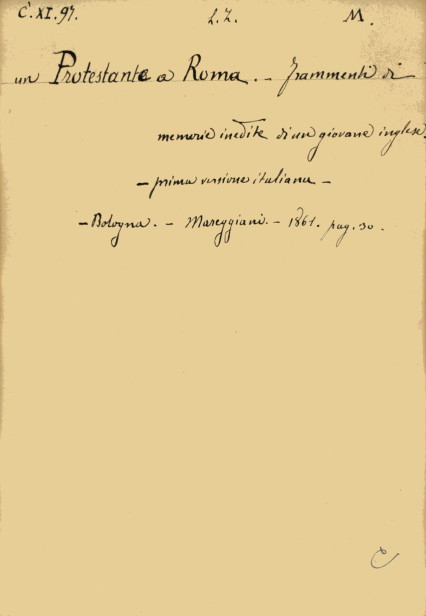 C. XI. 97. L. Z. M.
un Protestante a Roma. - frammenti di
memorie inedite di un giovane inglese.
- prima versione italiana -
- Bologna. - Mareggiani. - 1861. pag. 30.
C